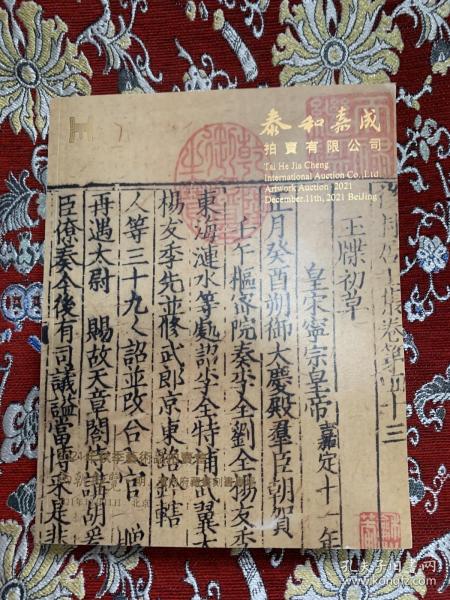 泰和嘉成
拍賣有限公司
Tai He Jia Cheng
International Auction Co., Ltd
Artwork Auction 2021
December.11th, 2021 BeiJing
玉牒初草
皇宋寧宗皇帝 嘉定十一年
正月癸酉朔御大慶殿羣臣朝賀
壬午樞密院奏李全劉全楊友季
東海漣水等處詔李全特補武翼大
楊友季先並修武郎京東路鈐轄
人等三十九人詔並改合入官 贈
再遇太尉 賜故天章閣待制胡爰
臣僚奏今後有司議謚當博采是非
孔夫子旧书网